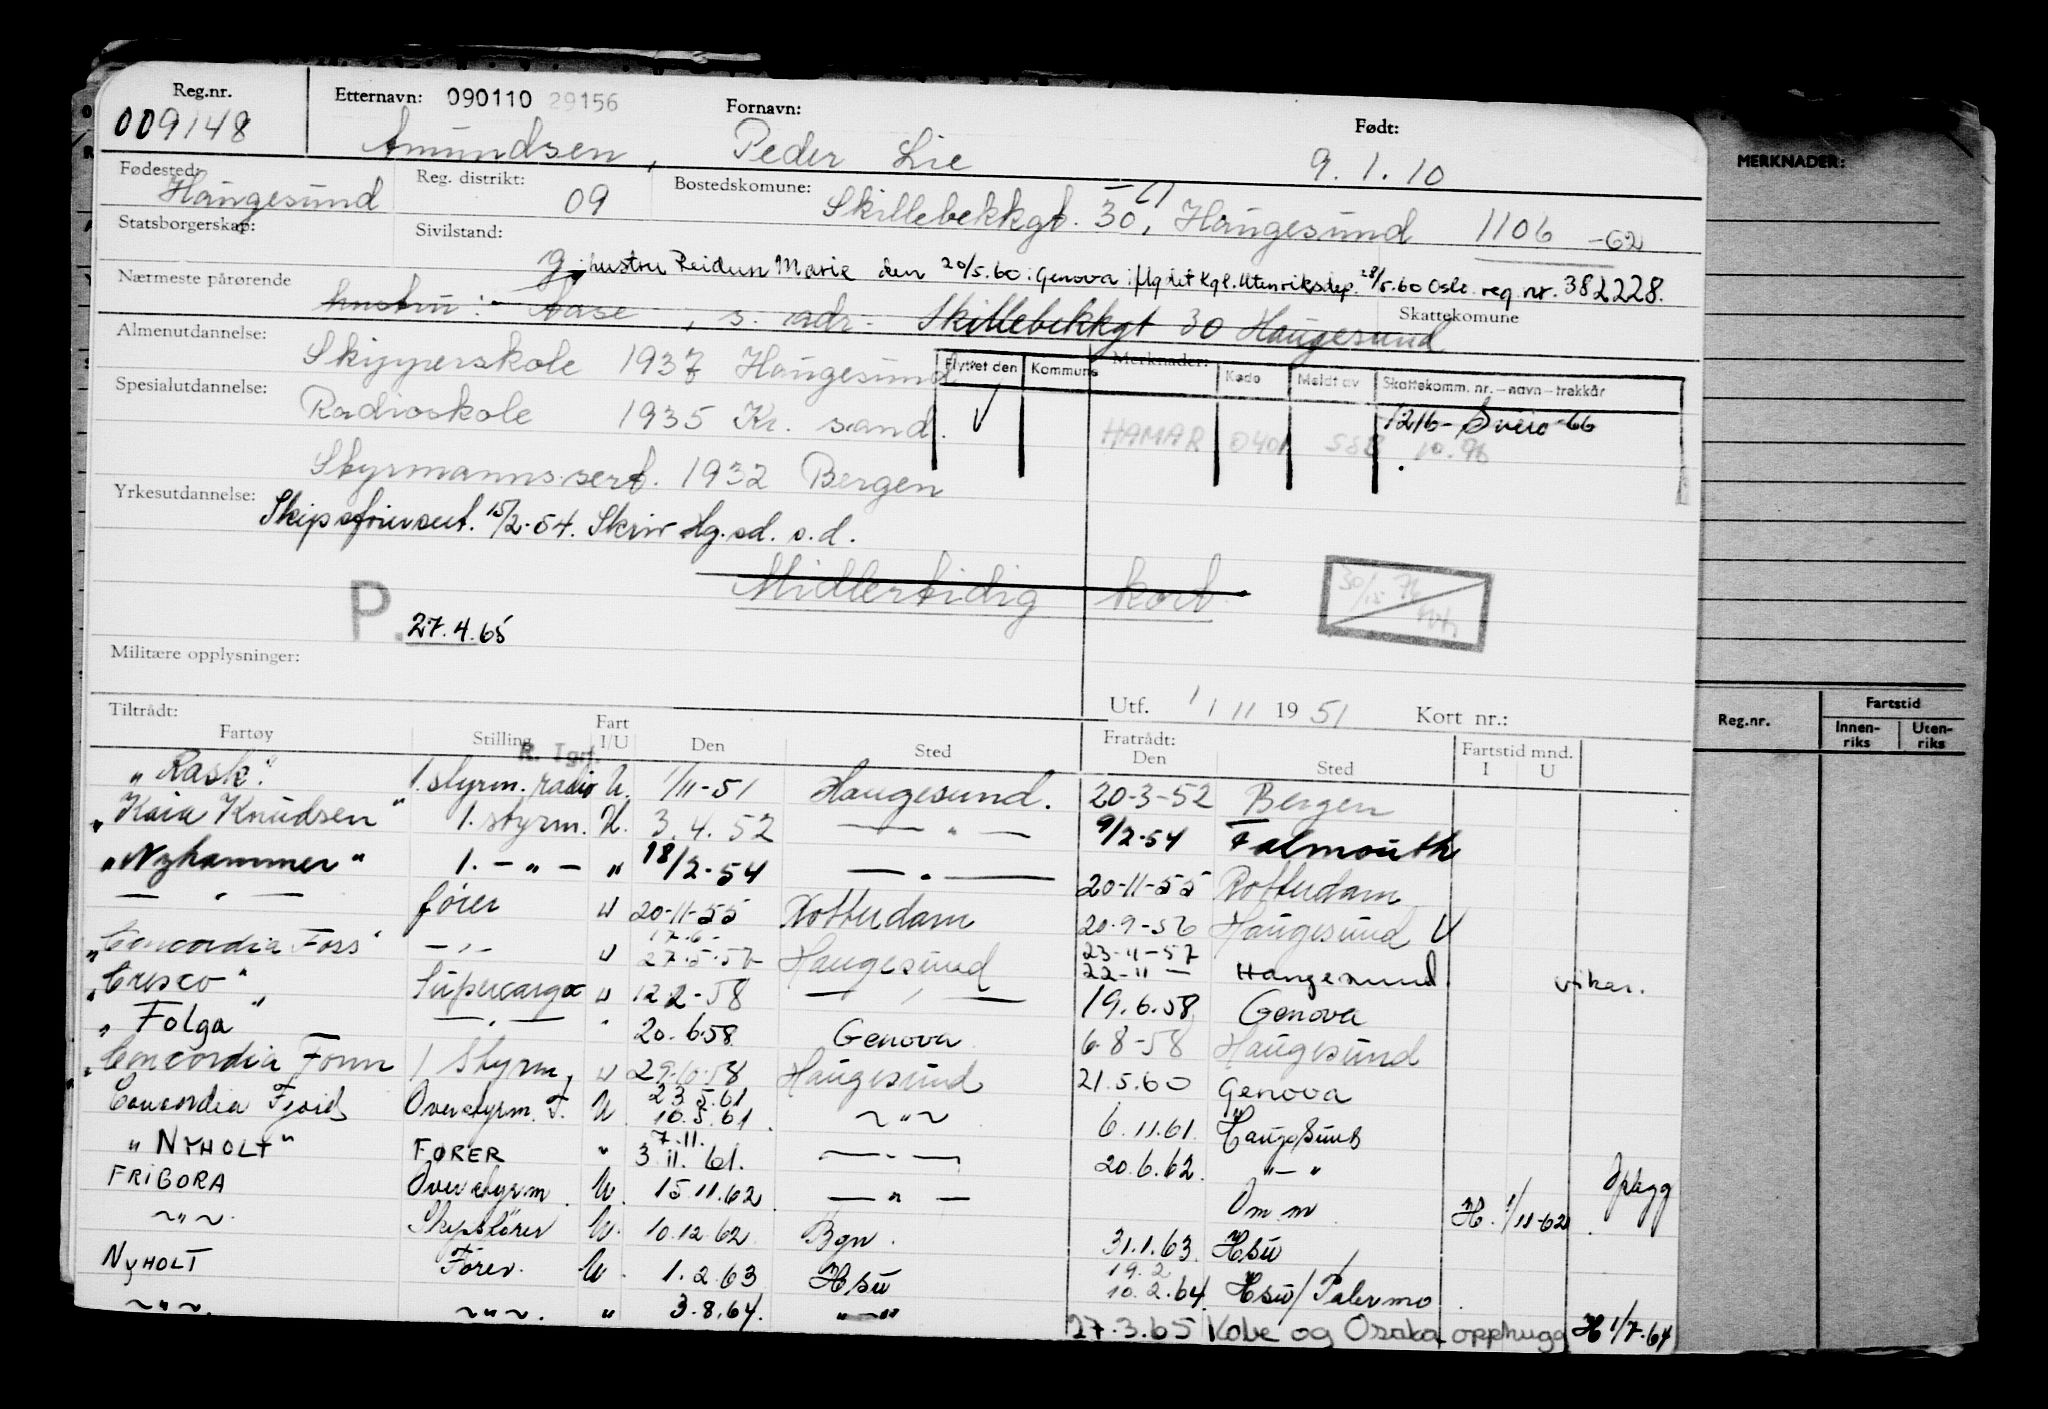 Reg.nr. Etternavn: 090110 29156 Fornavn: Født:
009148 Amundsen, Peder Lie 9.1.10
Fødested: Haugesund Reg. distrikt: 09 Bostedskomune: Skillebekkgt. 30, Haugesund 1106 -62
Statsborgerskap: Sivilstand: g
hustru Reidun Marie den 20/5.60 i Genova iflg det Kgl. Utenriksdep. 28/5.60 Oslo. reg nr. 382228.
Nærmeste pårørende hustru: Aase, s. adr. Skillebekkgt 30 Haugesund Skattekomune
Almenutdannelse: Skipperskole 1937 Haugesund
Flyttet den Kommune Merknader: Kode Meldt av Skattekomm. nr. – navn – trekkår
Spesialutdannelse: Radioskole 1935 Kr. sand.
1216 - Sveio -66
HAMAR 0401 SSB 10.76
Styrmanns.sert. 1932 Bergen
Yrkesutdannelse: Skipsførersert. 15/2-54. Skriv Hg.sd. s.d.
Midlertidig kort
P. 27.4.65
Militære opplysninger:
Utf. 1/11 1951 Kort nr.:
Tiltrådt: Fratrådt:
Fartøy Stilling Fart I/U Den Sted Den Sted Fartstid mnd. I U
R. Tgrf.
"Rask" 1. styrm. radio U. 1/11-51 Haugesund. 20-3-52 Bergen
"Kaia Knudsen" 1. styrm. U. 3.4.52 — " — 9/2-54 Falmouth
"Nyhammer" 1. — " — " 18/2-54 — " — 20-11-55 Rotterdam
— " — fører U 20-11-55 Rotterdam 20-9-56 Haugesund V
17.6-
"Concordia Foss" — " — U 27.5.57 Haugesund 23-11-57
22-11 — Haugesund. vikar.
"Cresco" Supercargo U 12.2-58 — " — 19.6.58 Genova
"Folga" — " — " 20.6.58 Genova 6-8-58 Haugesund
"Concordia Fonn 1 Styrm, U 29.10.58 Haugesund 21.5.60 Genova
23.5.61
Concordia Fjord Overstyrm. T. U. 10.5.61 ~ " ~ 6.11.61 Haugesund
7.11.
"NYHOLT" FØRER " 3.11.61. — " — 20.6.62 " — " Opplagg
FRIGORA Overstyrm. U. 15.11.62 — " — Omm H. 1/11-62
~ " ~ Skipsfører U. 10.12.62 Bgn. 31.1.63 Hsu
19.2
NYHOLT Fører. U. 1.2.63 Hsu 10.2.64 Hsu/Palermo
~ " ~. ~ " ~. " 3.8.64. " — " 27.3.65 Kobe og Osaka opphugg H 1/7-64
MERKNADER:
Reg.nr. Fartstid
Innen-riks Uten-riks